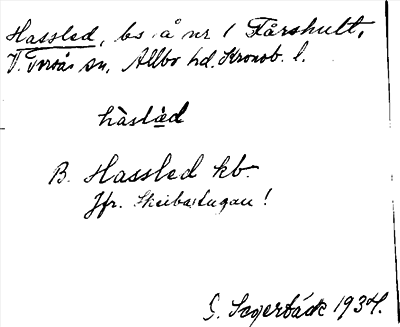 Hassled, bs å nr 1 Fårshult,
V. Torsås sn, Allbo hd. Kronob. l.
hàslàd
B. Hassled kb.
Jfr. Skeibastugan!
G. Sagerbäck 1934.